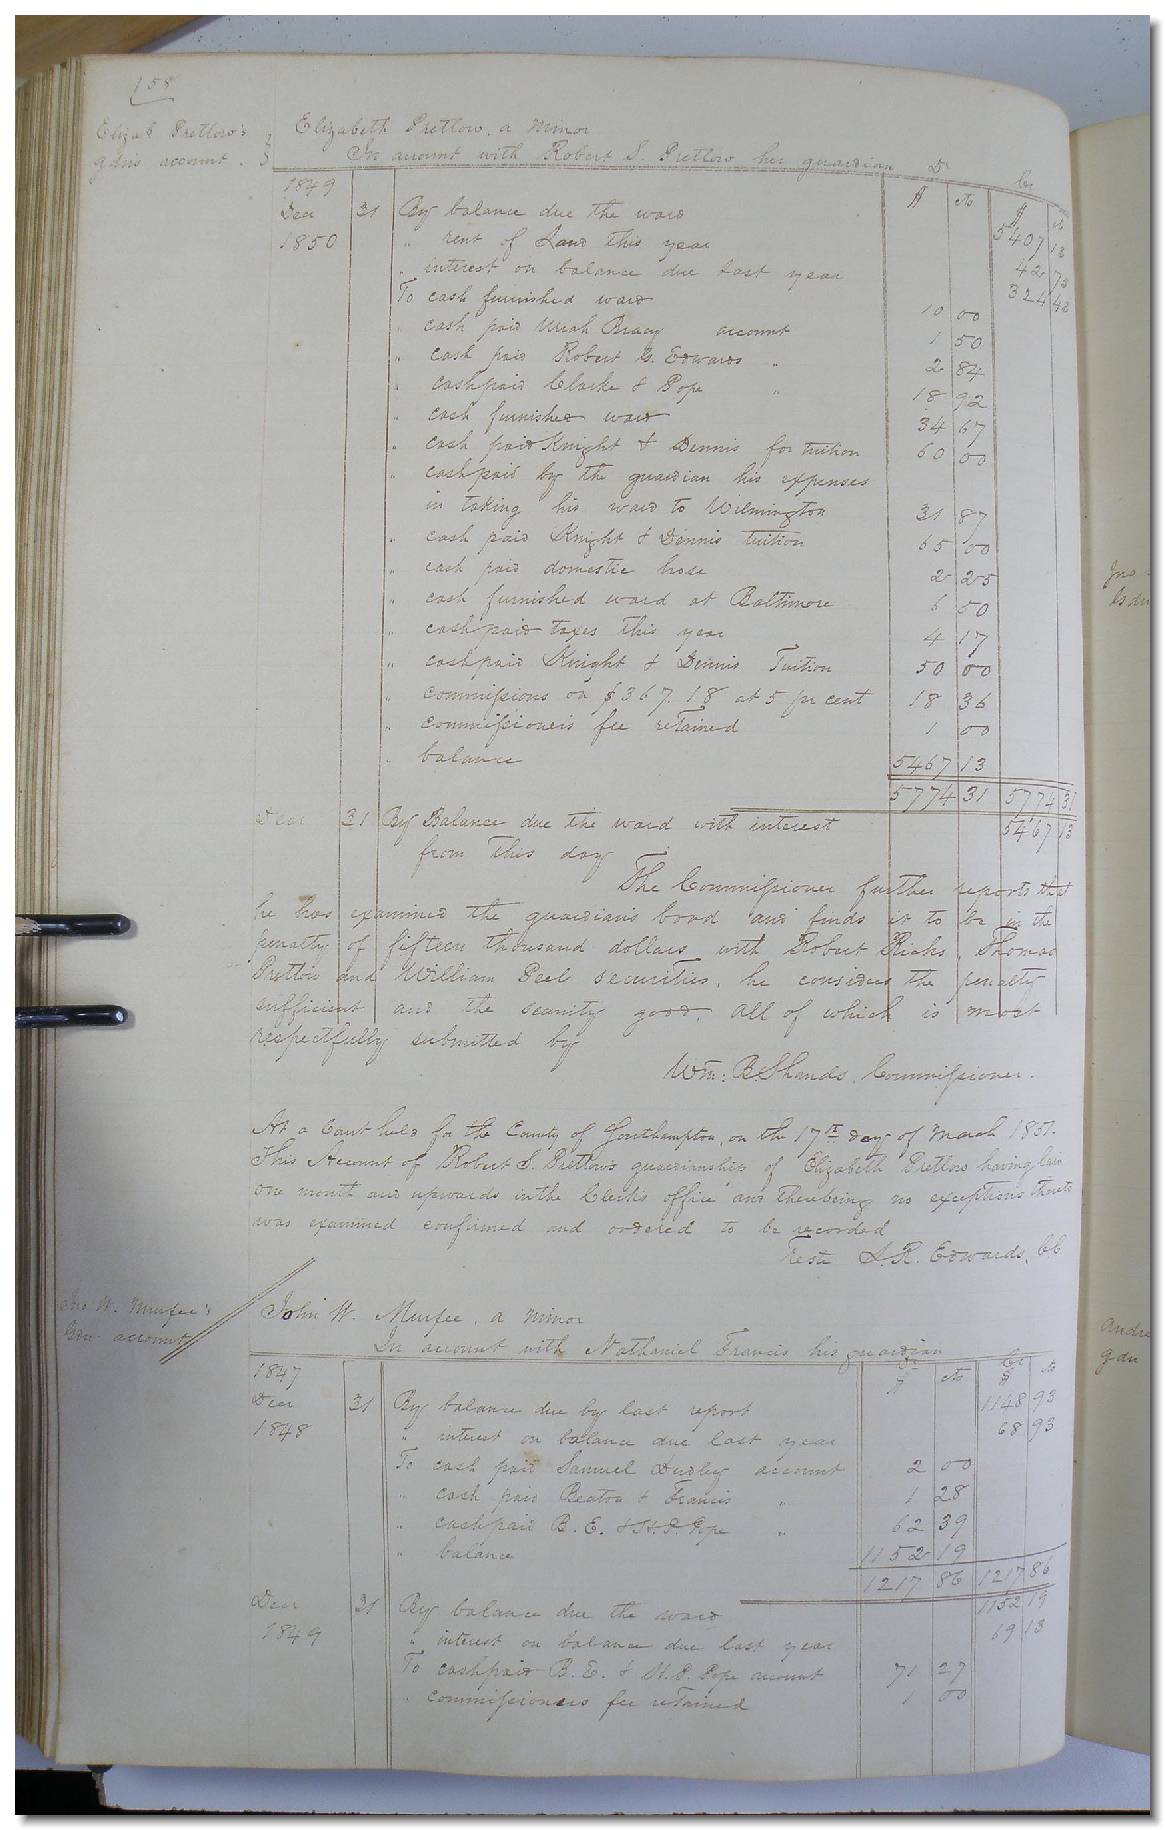 158
Elizab Pretlow's
gdn's account.
Elizabeth Pretlow, a minor
In account with Robert S. Pretlow her guardian Dr Cr
1849 $ cts $ cts
Decr 31 By balance due the ward 5407 13
1850 " rent of Land this year 42 75
" interest on balance due last year 324 43
To cash furnished ward 10 00
" cash paid Uriah Bracy account 1 50
" cash paid Robert G. Edwards " 2 84
" cash paid Clarke & Pope " 18 92
" cash furnished ward 34 67
" cash paid Knight & Dennis for tuition 60 00
" cash paid by the guardian his expenses
in taking his ward to Wilmington 31 87
" cash paid Knight & Dennis tuition 65 00
" cash paid domestic hose 2 25
" cash furnished ward at Baltimore 6 50
" cash paid taxes this year 4 17
" cash paid Knight & Dennis Tuition 50 00
" commissions on $367.18 at 5 pr cent 18 36
" commissioners fee retained 1 00
" balance 5467 13
5774 31 5774 31
Decr 31 By Balance due the ward with interest 5467 13
from this day
The Commissioner further reports that
he has examined the guardian's bond and finds it to be in the
penalty of fifteen thousand dollars with Robert Ricks, Thomas
Pretlow and William Peel securities, he considers the penalty
sufficient and the security good. All of which is most
respectfully submitted by
Wm: B Shands, Commissioner.
At a Court held for the County of Southampton, on the 17th day of March 1851.
This Account of Robert S. Pretlow's guardianship of Elizabeth Pretlow having lain
one month and upwards in the Clerk's office and there being no exceptions thereto
was examined confirmed and ordered to be recorded
Teste L. R. Edwards, CC
Jno W. Murfee's
Gdn account
John W. Murfee, a minor
In account with Nathaniel Francis his guardian Dr Cr
1847 $ cts $ cts
Decr 31 By balance due by last report 1148 93
1848 " interest on balance due last year 68 93
To cash paid Samuel Dudley account 2 00
" cash paid Beaton & Francis " 1 28
" cash paid B. E. & H. P. Pope " 62 39
" balance 1152 19
1217 86 1217 86
Decr 31 By balance due the ward 1152 19
1849 " interest on balance due last year 69 13
To cash paid B. E. & H. P. Pope account 71 27
" commissioners fee retained 1 00
Jno
Andre
gdn